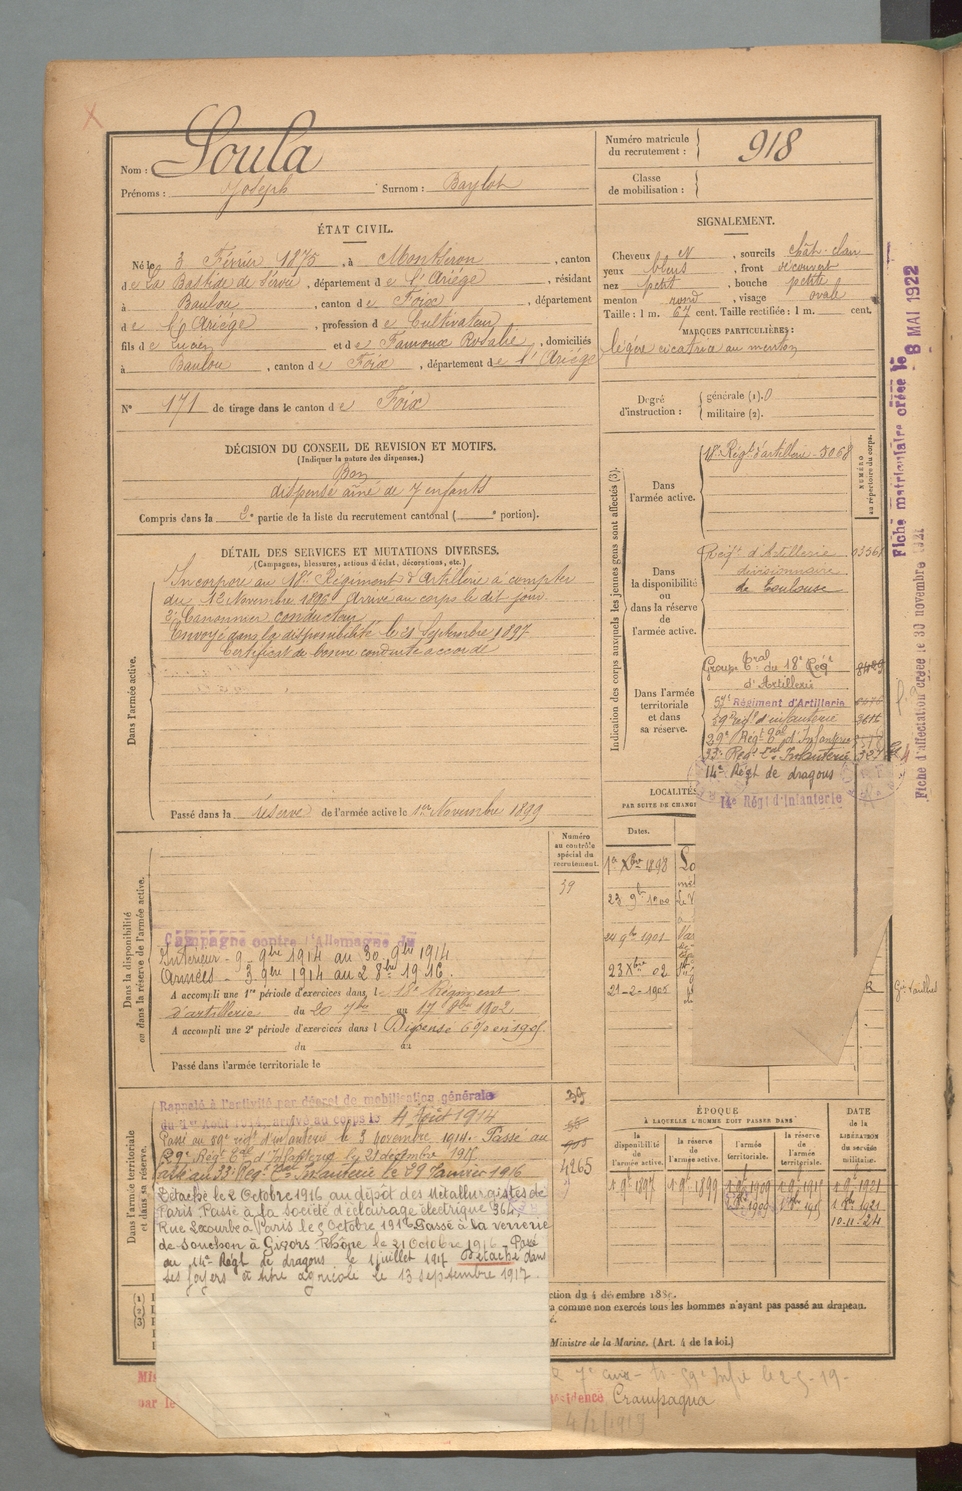 Nom : Soula
Prénoms : Joseph Surnom : Baylot
Numéro matricule du recrutement : 918
Classe de mobilisation :
ÉTAT CIVIL.
Né le 3 Février 1875, à Montséron, canton
de La Bastide de Sérou, département de l'Ariége, résidant
à Baulou, canton de Foix, département
de l'Ariége, profession de Cultivateur
fils de Lucien et de Famoux Rosalie, domiciliés
à Baulou, canton de Foix, département de l'Ariége
N° 171 de tirage dans le canton de Foix
DÉCISION DU CONSEIL DE REVISION ET MOTIFS.
(Indiquer la nature des dispenses.)
Bon
dispensé aîné de 7 enfants
Compris dans la 2e partie de la liste du recrutement cantonal ( e portion).
SIGNALEMENT.
Cheveux N, sourcils chât-clair
yeux bleus, front découvert
nez petit, bouche petite
menton rond, visage ovale
Taille : 1 m. 67 cent. Taille rectifiée : 1 m. cent.
MARQUES PARTICULIÈRES :
légère cicatrice au menton
Degré d'instruction : générale (1). 0
militaire (2).
DÉTAIL DES SERVICES ET MUTATIONS DIVERSES.
(Campagnes, blessures, actions d'éclat, décorations, etc.)
Dans l'armée active.
Incorporé au 18e Régiment d'Artillerie à compter
du 12 Novembre 1896 Arrivé au corps le dit jour.
2e Canonnier conducteur
Envoyé dans la disponibilité le 21 Septembre 1897
Certificat de bonne conduite accordé
Passé dans la réserve de l'armée active le 1er Novembre 1899
Indication des corps auxquels les jeunes gens sont affectés (3).
NUMÉRO au répertoire du corps.
Dans l'armée active.
18e Régt d'artillerie - 5068
Dans la disponibilité ou dans la réserve de l'armée active.
Régt d'Artillerie 03368
divisionnaire
de Toulouse
Dans l'armée territoriale et dans sa réserve.
Groupe Tral du 18e Régt 8489
d'Artillerie
57e Régiment d'Artillerie
59e régt d'infanterie
29e Régt Tal d'Infanterie
33e Regt Tal Infanterie 327
14e Régt de dragons
14e Régt d'Infanterie
Fiche matriculaire créée le 8 MAI 1922
Fiche d'affectation créée le 30 novembre
LOCALITÉS
PAR SUITE DE CHANG
Dates.
1er Xbre 1898 Lo
23 9bre 1900
24 9bre 1901
23 Xbre 02
21-2-1905
Dans la disponibilité ou dans la réserve de l'armée active.
Numéro au contrôle spécial du recrutement.
39
Campagne contre l'Allemagne du
Intérieur - 9bre 1914 au 30 9bre 1914
Armées - 3 9bre 1914 au 2 8bre 1916.
A accompli une 1re période d'exercices dans l 18e Régiment
d'artillerie du 20 7bre au 17 8bre 1902
A accompli une 2e période d'exercices dans l Dispensé 6% en 1905
du au
Passé dans l'armée territoriale le
Dans l'armée territoriale et dans sa réserve.
Rappelé à l'activité par décret de mobilisation générale
du 1er Août 1914, arrivé au corps le 4 Août 1914
Passé au 59e régt d'infanterie le 3 novembre 1914. Passé au
29e Régt Tal d'Infanterie le 21 décembre 1915
Passé au 33e Régt Tal Infanterie le 29 Janvier 1916
Détaché le 2 Octobre 1916 au dépôt des Métallurgistes de
Paris Passé à la Société d'éclairage électrique 364,
Rue Lecourbe à Paris le 5 Octobre 1916 Passé à la verrerie
de Souchon à Givors Rhône le 21 Octobre 1916 - Passé
au 14e Régt de dragons le 1 juillet 1917 Détaché dans
ses foyers à titre agricole le 13 septembre 1917.
39
4265
ÉPOQUE
À LAQUELLE L'HOMME DOIT PASSER DANS
la disponibilité de l'armée active.
la réserve de l'armée active.
l'armée territoriale.
la réserve de l'armée territoriale.
DATE de la LIBÉRATION du service militaire.
1 9bre 1897 1 9bre 1899 1 9bre 1909 1 9bre 1915 1 9bre 1921
10.11.24
(1)
(2)
(3)
ction du 4 décembre 1889.
comme non exercés tous les hommes n'ayant pas passé au drapeau.
Ministre de la Marine. (Art. 4 de la loi.)
59e Infie le 2-5-19-
par le
sidence Crampagna
4/2/1919